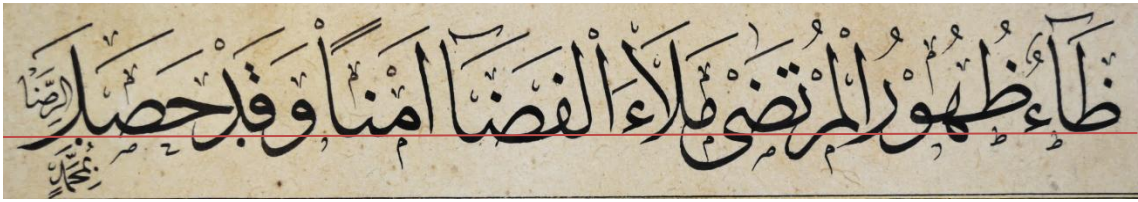 ظَاءُ ظُهُوْرُ الْمُرْتَضٰى مَلَاَءَ الْفَضَآ اَمْنًا وَقَدْ حَصَلَ الرِّضَا
بِمُحَمَّدٍ